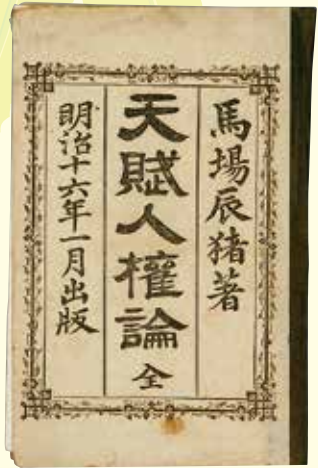 馬場辰猪著
天賦人權論 全
明治十六年一月出版